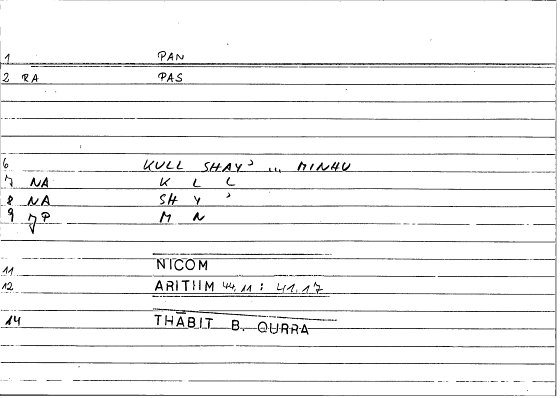 1 PAN
2 RA PAS
6 KULL SHAY' ... MINHU
7 NA K L L
8 NA SH Y '
9 M N
11 NICOM
12 ARITHM 44,11 : 41,17
14 THĀBIT B. QURRA